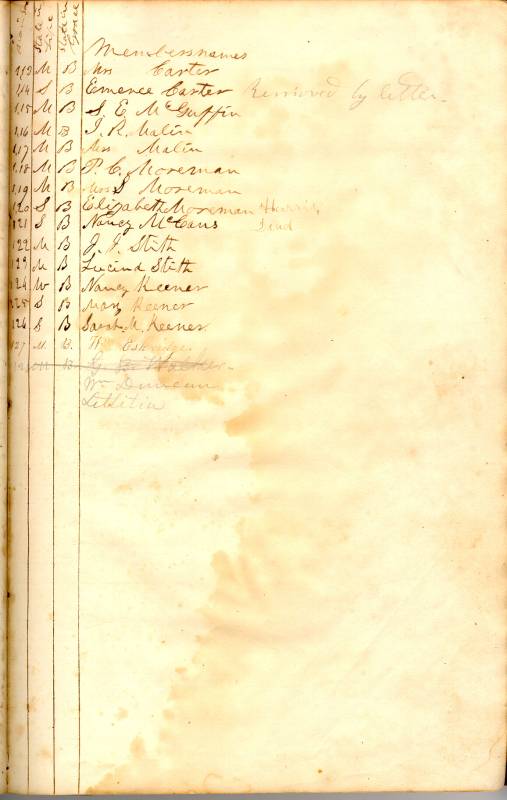 State in Life State in Grace
Members names
113 M B Mrs Carter
114 S B Emerence Carter Removed by letter
115 M B S. E. McGuffin
116 M B J. R. Malin
117 M B Mrs Malin
118 M B P. C. Moreman
119 M B Mrs S Moreman
120 S B Elizabeth Moreman Harris
121 S B Nancy McCans
122 M B J. J. Stith
123 M B Lucind Stith
124 W B Nancy Keener
125 S B Mary Keener
126 S B Sarah M. Keener
127 M B. Wm Eskridge
B Walker
Wm Duncan
Letitia